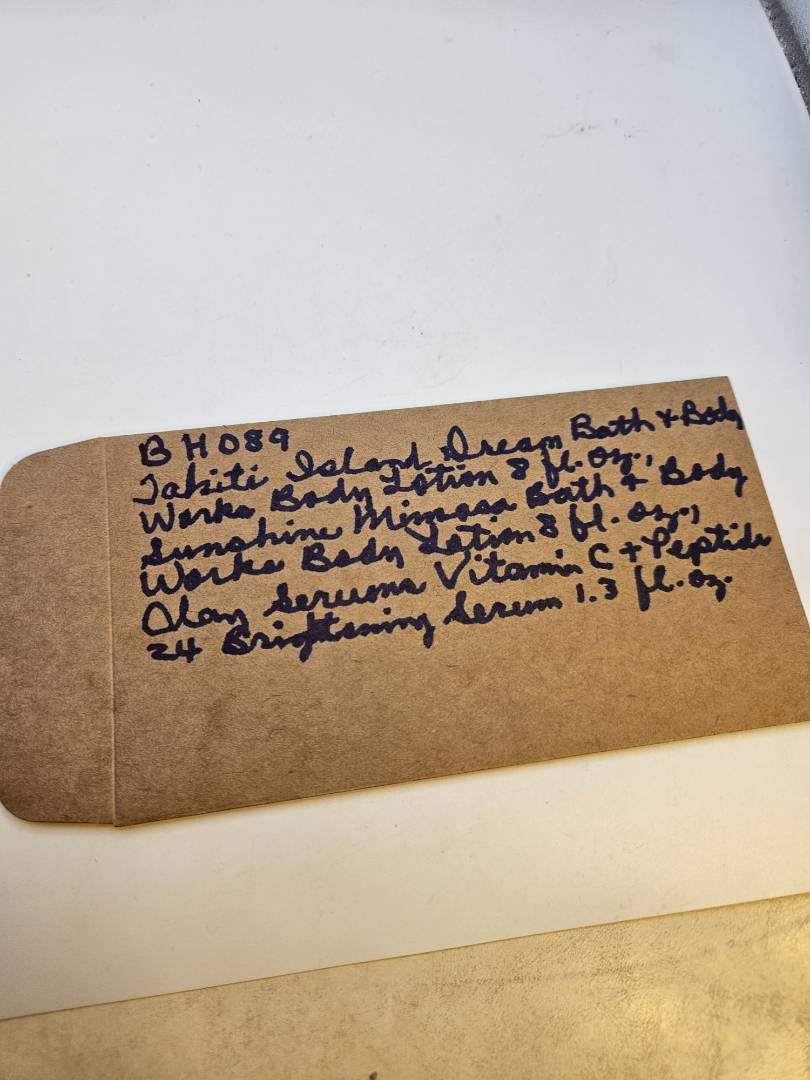 BH089
Tahiti Island Dream Bath & Body
Works Body Lotion 8 fl. oz.,
Sunshine Mimosa Bath & Body
Works Body Lotion 8 fl. oz.,
Olay Serums Vitamin C + Peptide
24 Brightening Serum 1.3 fl. oz.